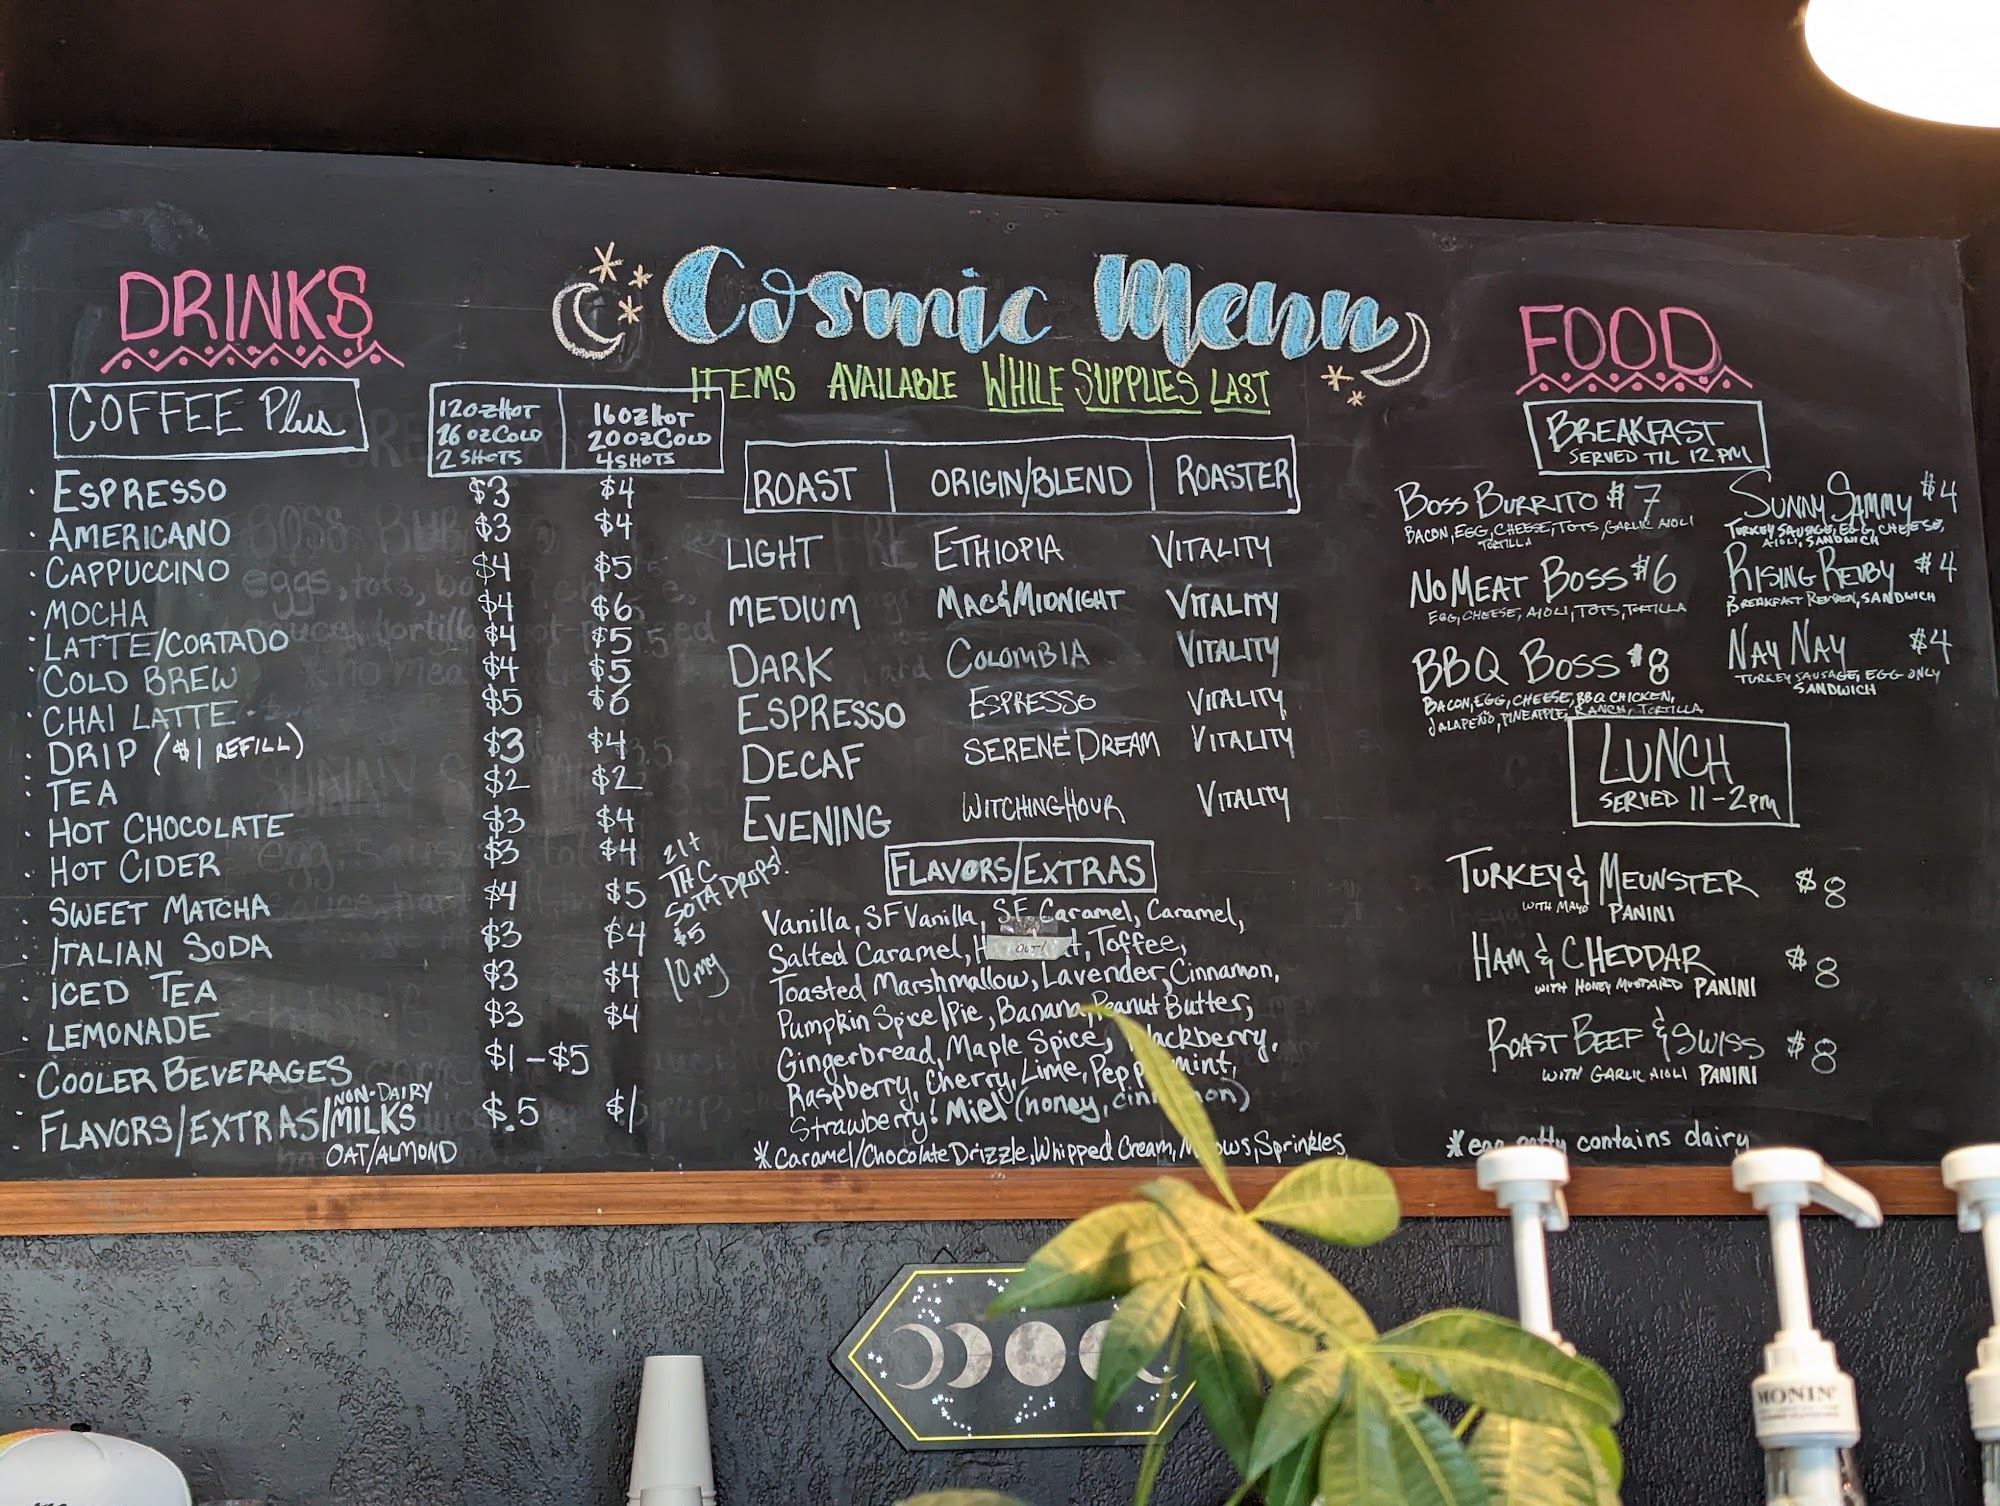 Cosmic Menu
ITEMS AVAILABLE WHILE SUPPLIES LAST
DRINKS
COFFEE Plus
12OZ HOT
16 OZ COLD
2 SHOTS
16OZ HOT
20OZ COLD
4 SHOTS
· ESPRESSO $3 $4
· AMERICANO $3 $4
· CAPPUCCINO $4 $5
· MOCHA $4 $6
· LATTE/CORTADO $4 $5
· COLD BREW $4 $5
· CHAI LATTE $5 $6
· DRIP ($1 REFILL) $3 $4
· TEA $2 $2
· HOT CHOCOLATE $3 $4
· HOT CIDER $3 $4
· SWEET MATCHA $4 $5
· ITALIAN SODA $3 $4
· ICED TEA $3 $4
· LEMONADE $3 $4
· COOLER BEVERAGES $1-$5
· FLAVORS/EXTRAS/NON-DAIRY MILKS $.5 $1
OAT/ALMOND
21+
THC
SOTA DROPS!
$5
10mg
ROAST ORIGIN/BLEND ROASTER
LIGHT ETHIOPIA VITALITY
MEDIUM MAC & MIDNIGHT VITALITY
DARK COLOMBIA VITALITY
ESPRESSO ESPRESSO VITALITY
DECAF SERENE DREAM VITALITY
EVENING WITCHING HOUR VITALITY
FLAVORS/EXTRAS
Vanilla, SF Vanilla, SF Caramel, Caramel,
Salted Caramel, OUT! Toffee,
Toasted Marshmallow, Lavender, Cinnamon,
Pumpkin Spice/Pie, Banana, Peanut Butter,
Gingerbread, Maple Spice, Blackberry,
Raspberry, Cherry, Lime, Peppermint,
Strawberry! Miel (honey, cinnamon)
* Caramel/Chocolate Drizzle, Whipped Cream, Mallows, Sprinkles
FOOD
BREAKFAST
SERVED TIL 12PM
BOSS BURRITO $7
BACON, EGG, CHEESE, TOTS, GARLIC AIOLI
TORTILLA
NO MEAT BOSS $6
EGG, CHEESE, AIOLI, TOTS, TORTILLA
BBQ BOSS $8
BACON, EGG, CHEESE, BBQ CHICKEN,
JALAPEÑO, PINEAPPLE, RANCH, TORTILLA
SUNNY SAMMY $4
TURKEY SAUSAGE, EGG, CHEESE,
AIOLI, SANDWICH
RISING REUBY $4
BREAKFAST REUBEN, SANDWICH
NAY NAY $4
TURKEY SAUSAGE, EGG ONLY
SANDWICH
LUNCH
SERVED 11-2PM
TURKEY & MEUNSTER $8
WITH MAYO PANINI
HAM & CHEDDAR $8
WITH HONEY MUSTARD PANINI
ROAST BEEF & SWISS $8
WITH GARLIC AIOLI PANINI
* egg patty contains dairy
MONIN